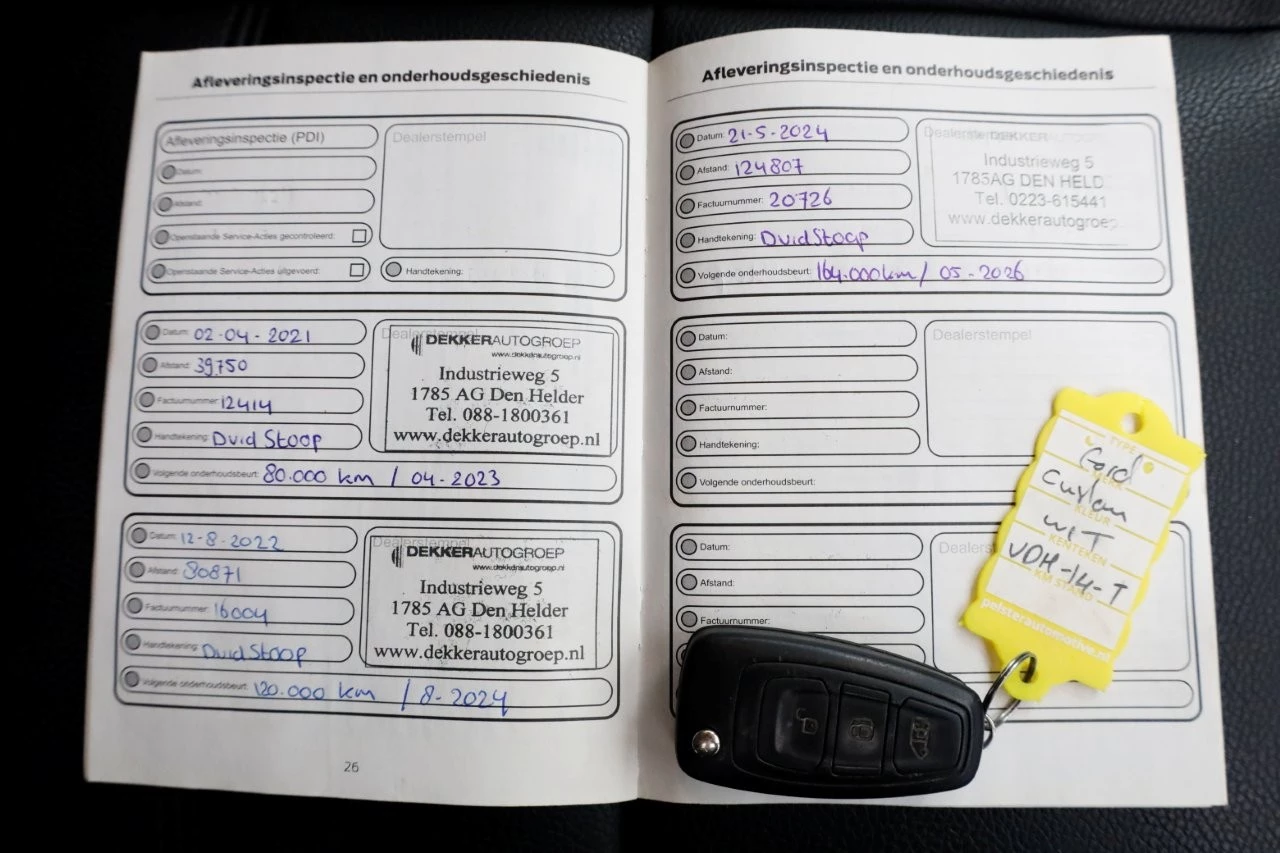 Afleveringsinspectie en onderhoudsgeschiedenis
Afleveringsinspectie (PDI)
Dealerstempel
Datum:
Afstand:
Openstaande Service-Acties gecontroleerd:
Openstaande Service-Acties uitgevoerd:
Handtekening:
Datum: 02-04-2021
Afstand: 39.750
Factuurnummer: 12414
Handtekening: Dvid Stoop
Volgende onderhoudsbeurt: 80.000 km / 04-2023
Dealerstempel
DEKKERAUTOGROEP
www.dekkerautogroep.nl
Industrieweg 5
1785 AG Den Helder
Tel. 088-1800361
www.dekkerautogroep.nl
Datum: 12-8-2022
Afstand: 80871
Factuurnummer: 16004
Handtekening: Dvid Stoop
Volgende onderhoudsbeurt: 120.000 km / 8-2024
Dealerstempel
DEKKERAUTOGROEP
www.dekkerautogroep.nl
Industrieweg 5
1785 AG Den Helder
Tel. 088-1800361
www.dekkerautogroep.nl
26
Afleveringsinspectie en onderhoudsgeschiedenis
Datum: 21-5-2024
Afstand: 124807
Factuurnummer: 20726
Handtekening: Dvid Stoop
Volgende onderhoudsbeurt: 164.000km / 05-2026
DEKKERAUTOGROEP
Industrieweg 5
1785AG DEN HELD
Tel. 0223-615441
www.dekkerautogroep
Datum:
Afstand:
Factuurnummer:
Handtekening:
Volgende onderhoudsbeurt:
Dealerstempel
Datum:
Afstand:
Factuurnummer:
Dealers
TYPE
Ford
Custom
KLEUR
wit
KENTEKEN
VDH-14-T
KM STAND
pelsterautomotive.nl